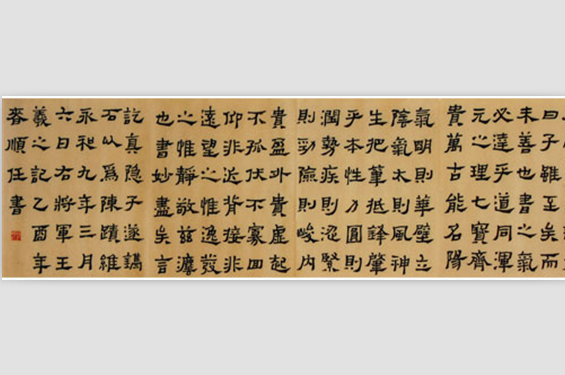 曰子雖至矣而
未善也書之氣
必達乎道同渾
元之理七寶齊
貴萬古能名陽
氣明則華壁立
陰氣太則風神
生把筆抵鋒肇
乎本性力圓則
潤勢疾則澀緊
則勁險則峻内
貴盈外貴虛起
不孤伏不寡回
仰非近背接非
遠望之惟逸發
之惟靜敬茲灋
也書妙盡矣言
訖真隐子遂鐫
石以爲陳蹟維
永和九年三月
六日右將軍王
羲之記乙酉年
順任書